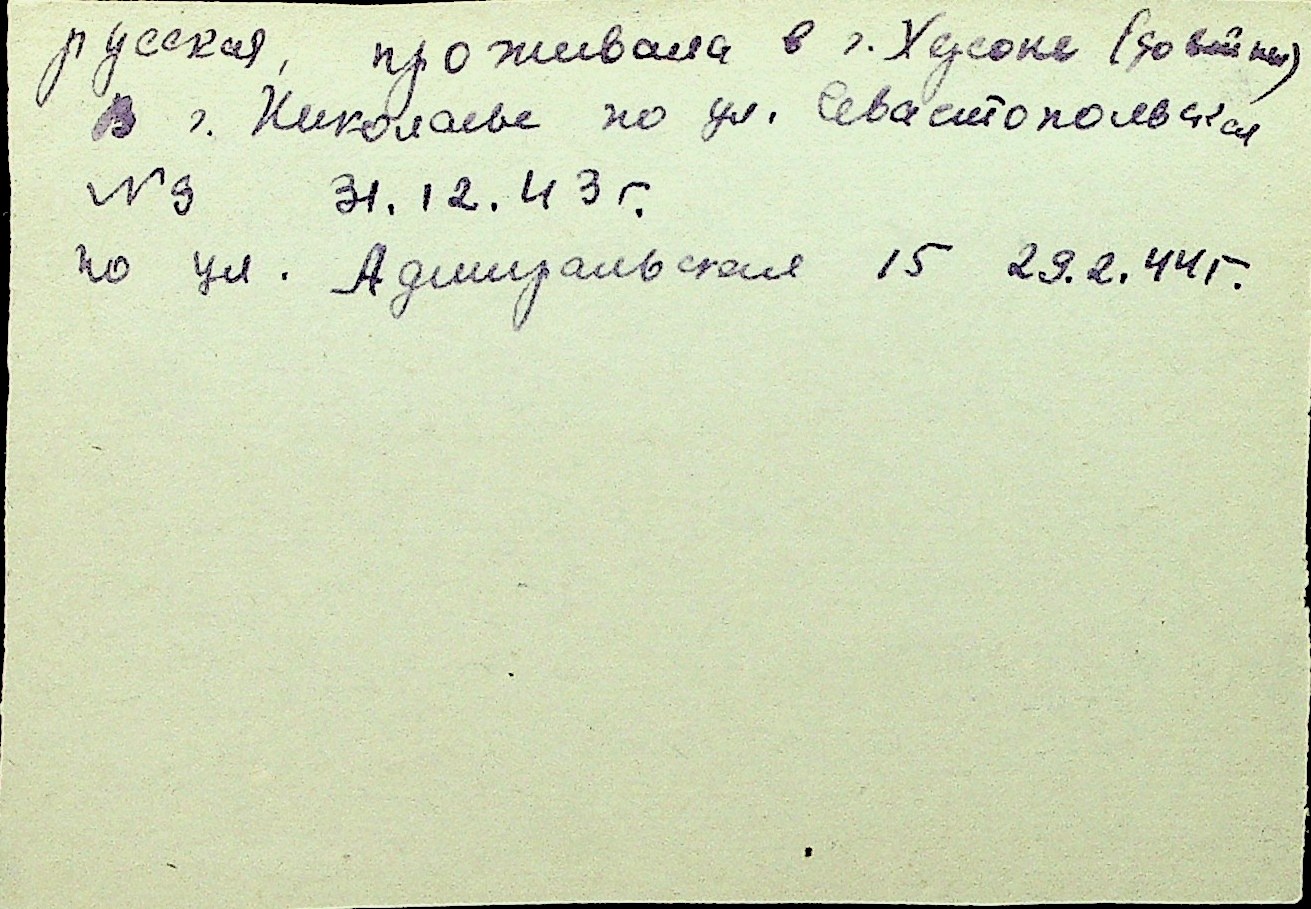 русская, проживала в г. Херсоне (до войны)
В г. Николаеве по ул. Севастопольская
№ 9 31.12.43 г.
по ул. Адмиральская 15 29.2.44 г.